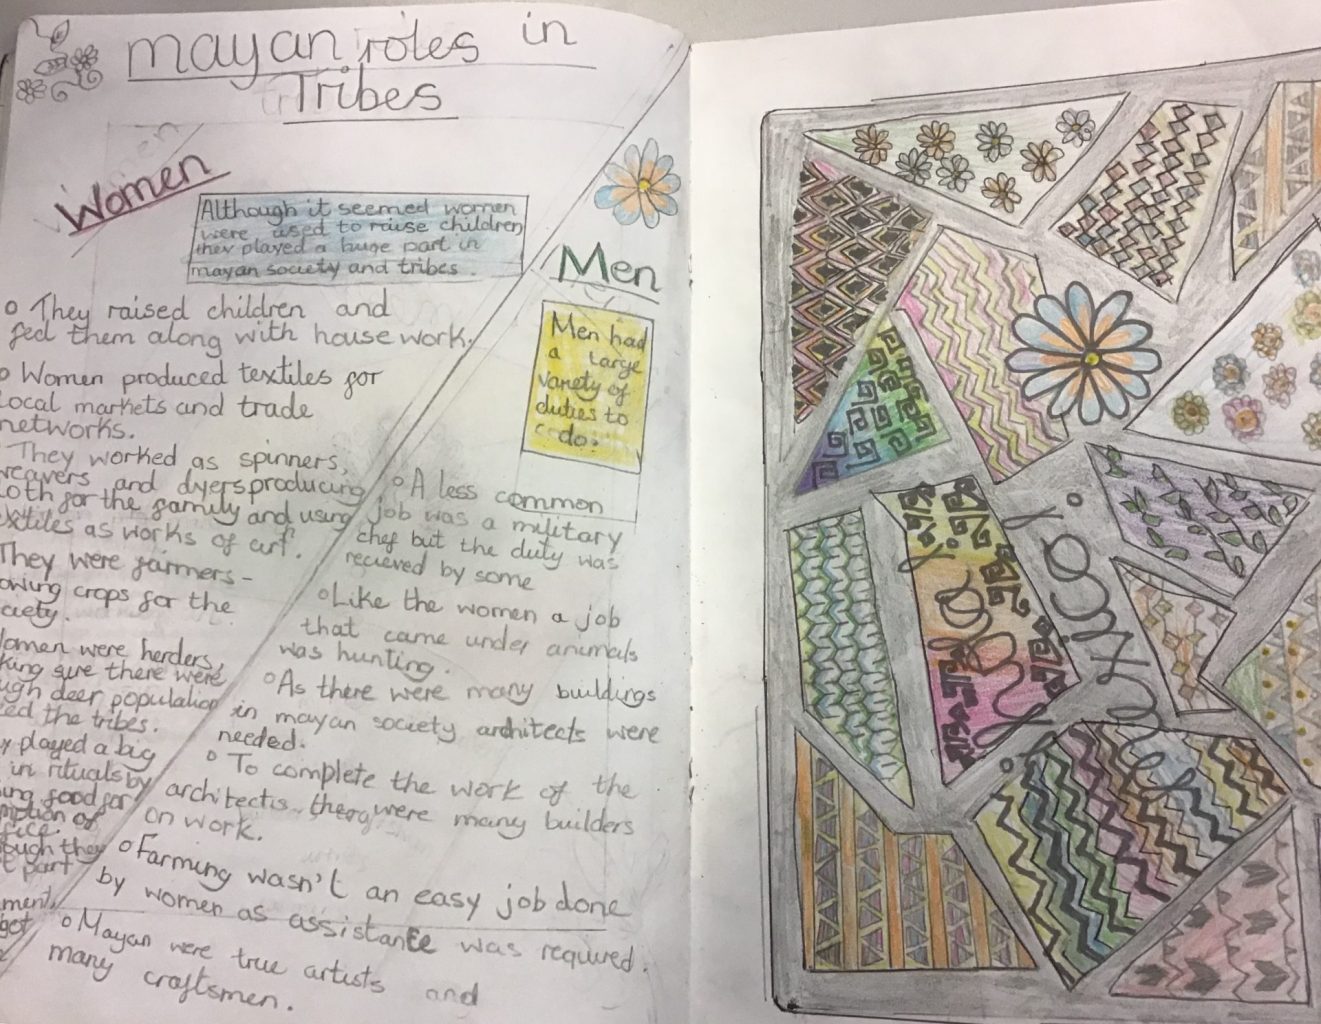 mayan roles in
Tribes
Women
Although it seemed women
were used to raise children
they played a huge part in
mayan society and tribes.
They raised children and
fed them along with house work.
Women produced textiles for
local markets and trade
networks.
They worked as spinners,
weavers and dyers producing
cloth for the family and using
textiles as works of art.
They were farmers -
owing crops for the
ciety.
Women were herders,
king sure there were
ugh deer population
ed the tribes.
y played a big
in rituals by
ing food for
mption of
fice.
ough they
t part
ment,
got
Men
Men had
a large
variety of
duties to
do.
A less common
job was a military
chef but the duty was
recieved by some
Like the women a job
that came under animals
was hunting.
As there were many buildings
in mayan society architects were
needed.
To complete the work of the
architectis there were many builders
on work.
Farming wasn't an easy job done
by women as assistance was required.
Mayan were true artists and
many craftsmen.